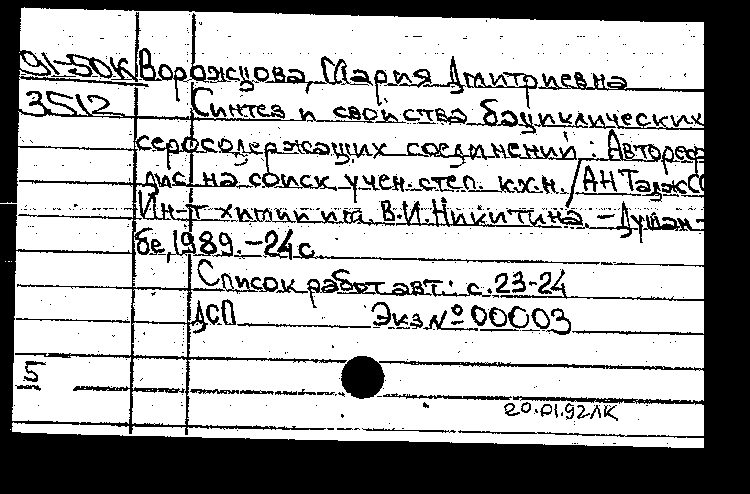 91-50К Ворожцова, Мария Дмитриевна
3512 Синтез и свойства бициклических
серосодержащих соединений : Автореф
дис. на соиск. учен. степ. к.х.н. / АН ТаджСС
Ин-т химии им. В.И.Никитина. – Душан-
бе, 1989. – 24 с
Список работ авт.: с. 23-24
ДСП Экз № 00003
20.01.92ЛК